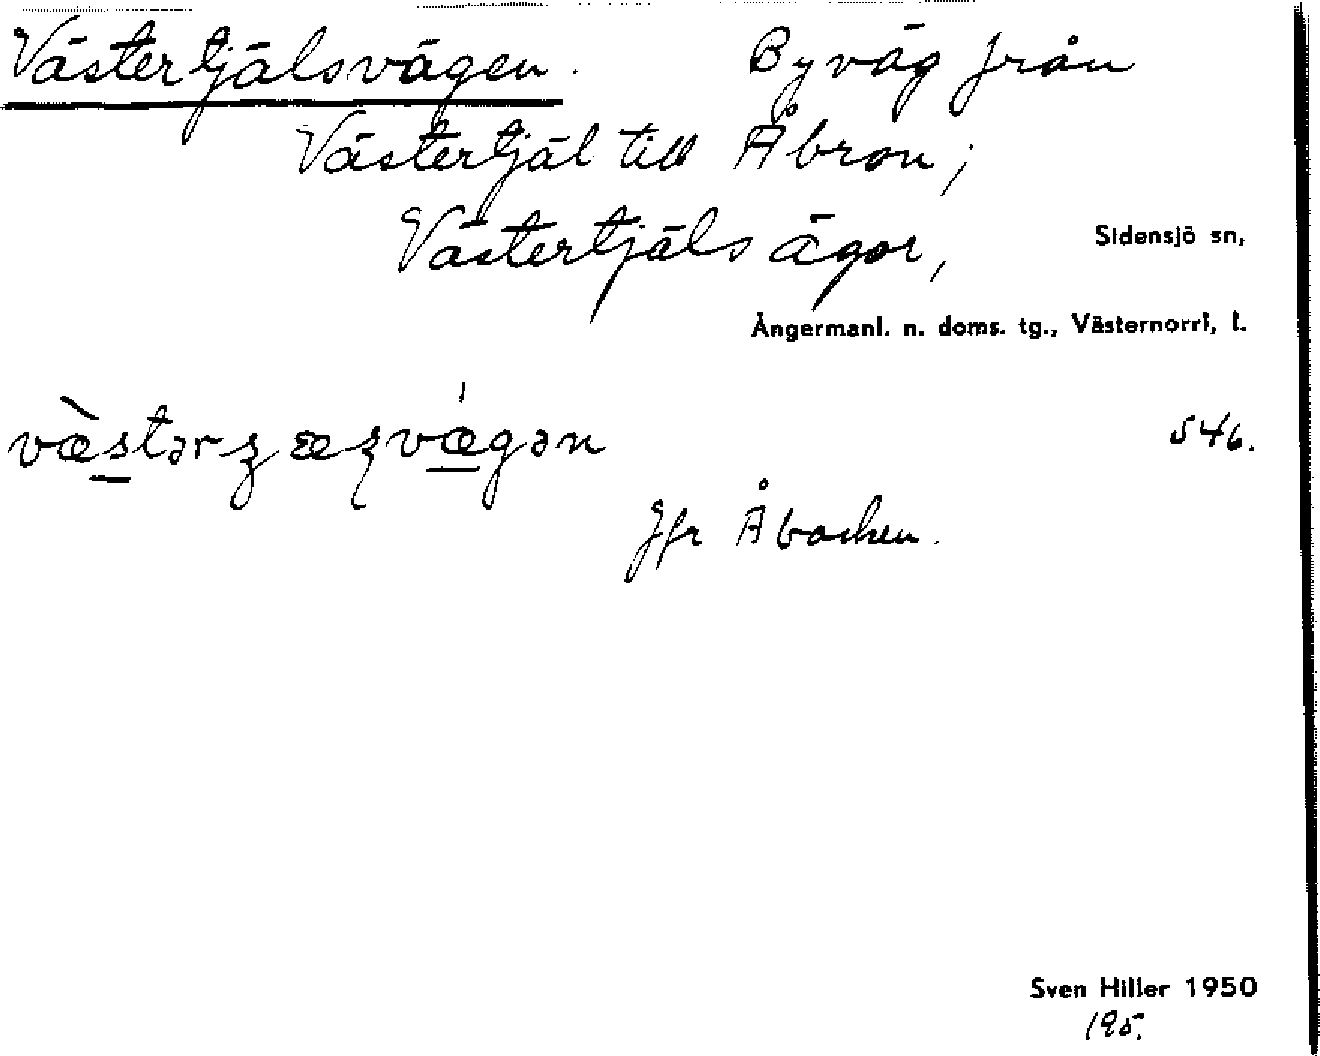 Västertjälsvägen. Byväg från
Västertjäl till Åbron;
Västertjäls ägor,
Sidensjö sn,
Ångermanl. n. doms. tg., Västernorrl. l.
546.
Jfr Åbacken.
Sven Hiller 1950
195.